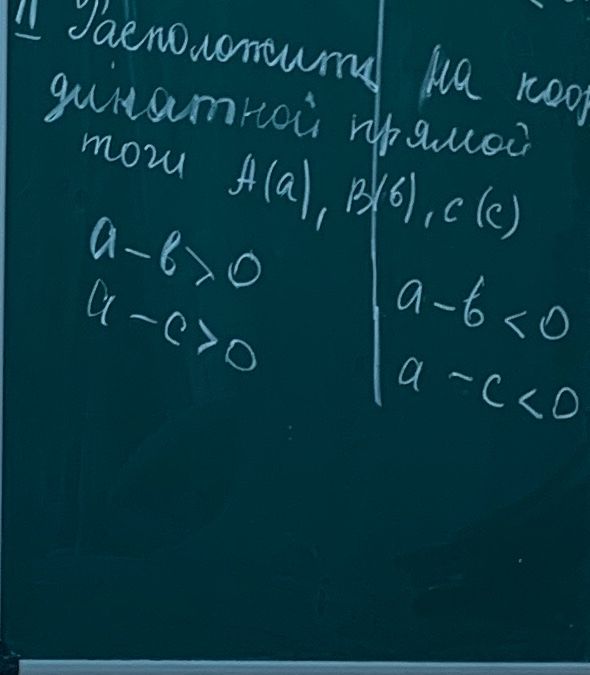 II Расположить на коор
динатной прямой
точи A(a), B(b), C(c)
a-b>0
a-c>0
a-b<0
a-c<0